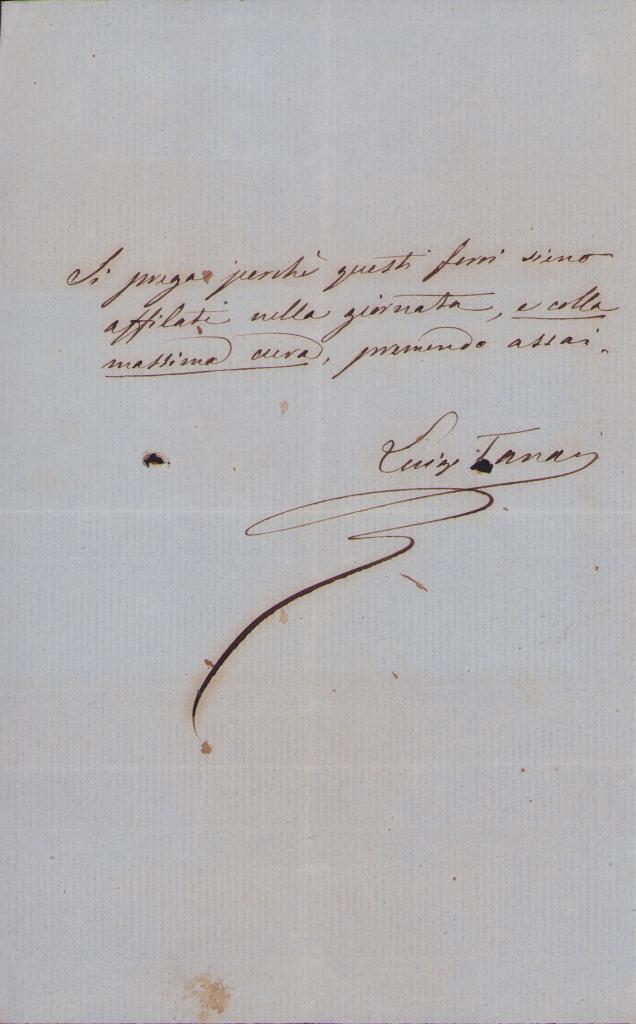 Si prega perchè questi ferri sieno
affilati nella giornata, e colla
massima cura, premendo assai.
Luigi Tanari